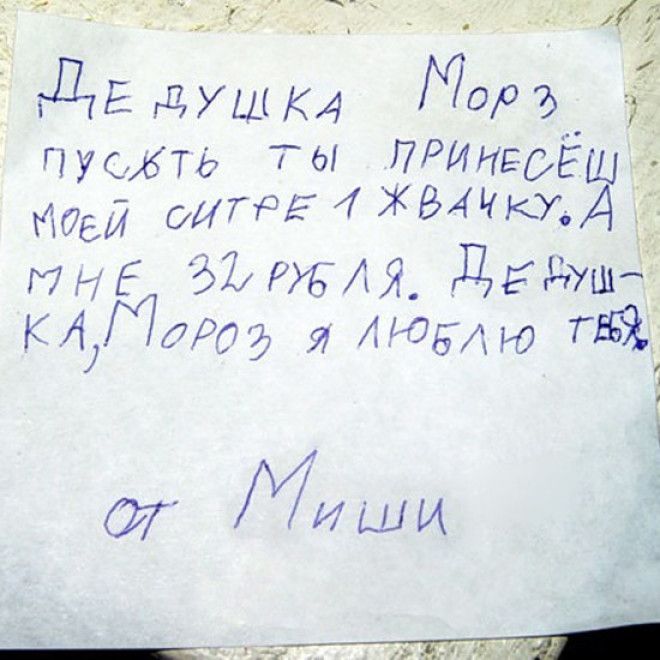 ДЕДУШКА МОРЗ
ПУСЬТЬ ТЫ ПРИНЕСЁШ
МОЕЙ СИТРЕ 1 ЖВАЧКУ. А
МНЕ 32 РУБЛЯ. ДЕДУШ-
КА, МОРОЗ Я ЛЮБЛЮ ТЕБЯ.
от Миши